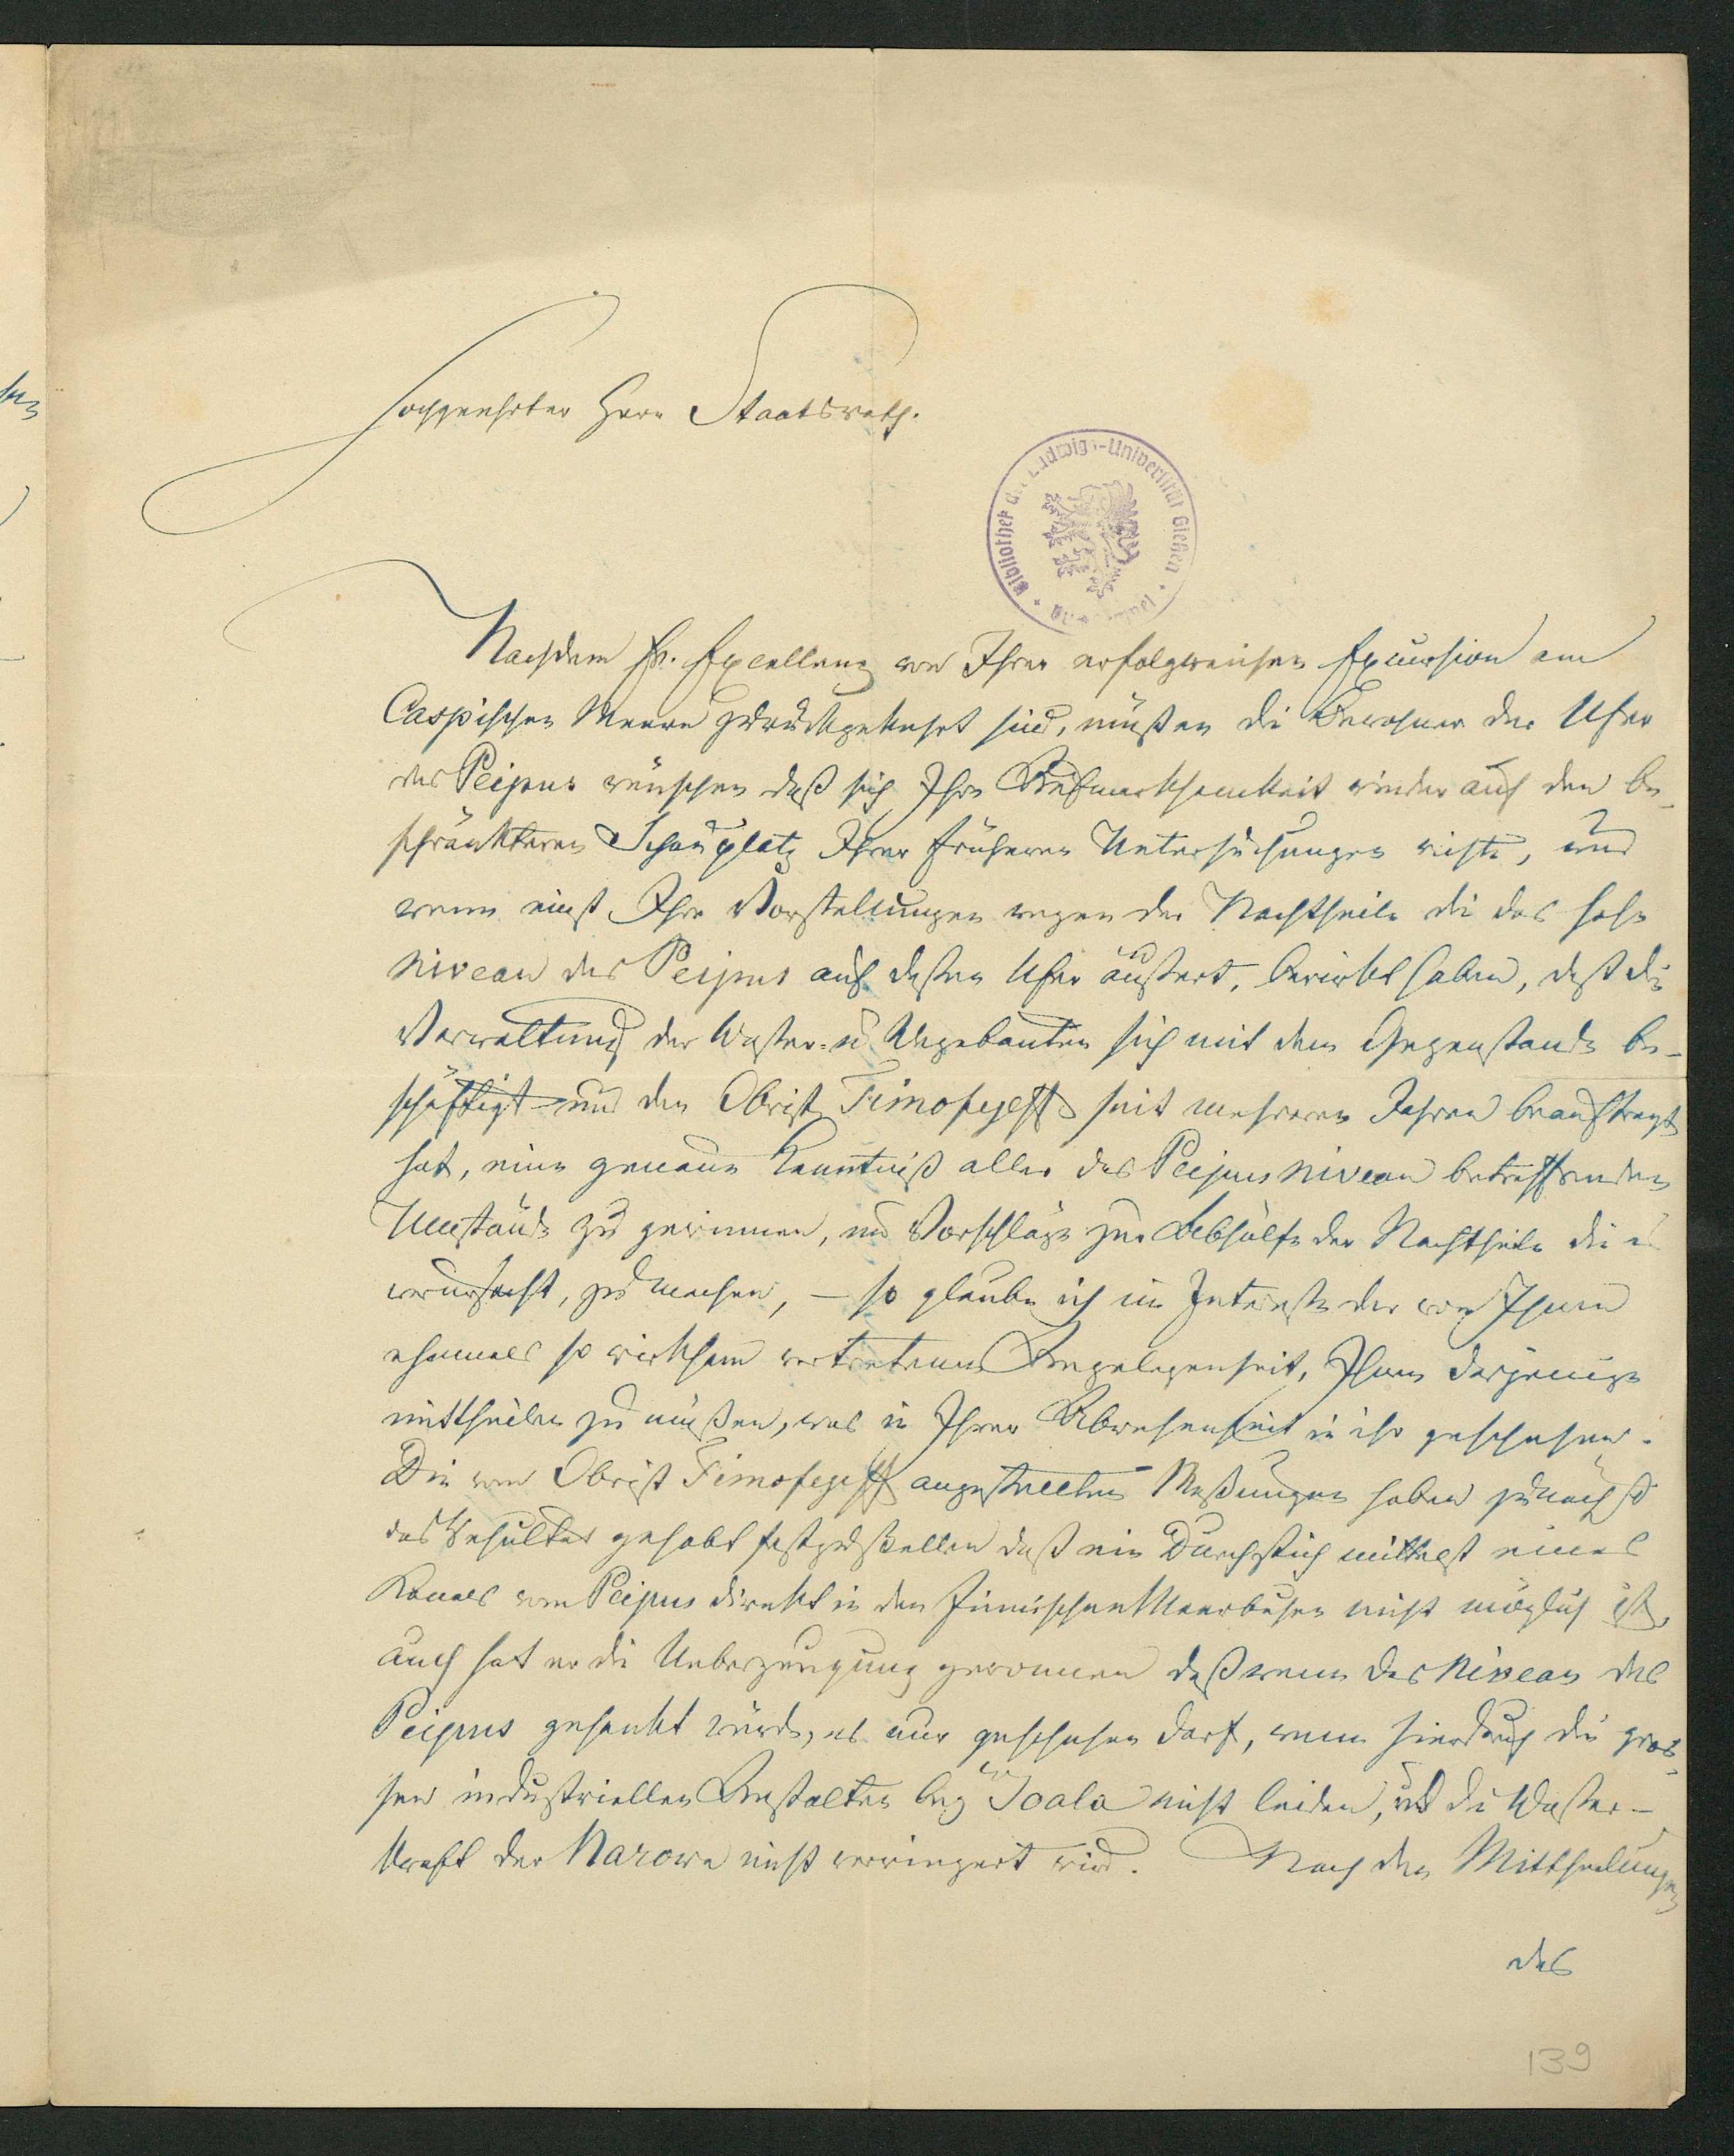 Hochgeehrter Herr Staatsrath.
Bibliothek d. Ludwigs-Universität Gießen
Nachdem Ew. Excellenz von Ihrer erfolgreichen Excursion am
Caspischen Meere zurückgekehrt sind, müßen die Bewohner der Ufer
des Peipus wünschen daß sich Ihre Aufmerksamkeit wieder auf den be-
schränkteren Schauplatz Ihrer früheren Untersuchungen richte, und
wenn einst Ihre Vorstellungen wegen der Nachtheile die das hohe
Niveau des Peipus auf deßen Ufer äußert, bewirkt haben, daß die
Verwaltung der Waßer- u Wegebauten sich mit dem Gegenstande be-
schäftigt und den Obrist Timofejeff seit mehreren Jahren beauftragt
hat, eine genaue Kenntniß aller das Peipus Niveau betreffenden
Umstände zu gewinnen, und Vorschläge zur Abhülfe der Nachtheile die es
verursacht, zu machen, – so glaube ich im Intereße der von Ihnen
ehemals so wirksam vertretenen Angelegenheit, Ihnen dasjenige
mittheilen zu müßen, was in Ihrer Abwesenheit in ihr geschehen.
Die vom Obrist Timofejeff angestellten Meßungen haben zunächst
das Resultat gehabt festzustellen daß ein Durchstich mittelst eines
Kanals vom Peipus direkt in den Finnischen Meerbusen nicht möglich ist,
auch hat er die Ueberzeugung gewonnen daß wenn das Niveau des
Peipus gesenkt würde, es nur geschehen darf, wenn hierdurch die gros-
sen industriellen Anstalten bey Joala nicht leiden, und die Waßer-
kraft der Narowa nicht verringert wird. Nach den Mittheilungen
des
139